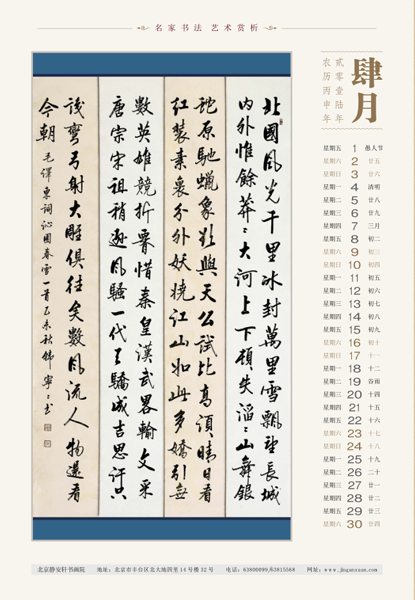 名家书法 艺术赏析
肆月
贰零壹陆年
农历丙申年
北國風光千里冰封萬里雪飄望長城
内外惟餘莽〻大河上下頓失滔〻山舞銀
蛇原馳蠟象欲與天公試比高須晴日看
紅裝素裹分外妖嬈江山如此多嬌引無
數英雄競折腰惜秦皇漢武畧輸文采
唐宗宋祖稍遜風騷一代天驕成吉思汗只
識彎弓射大雕俱往矣數風流人物還看
今朝
毛澤東詞沁園春雪一首乙未秋韓寧〻书
星期五 1 愚人节
星期六 2 廿五
星期日 3 廿六
星期一 4 清明
星期二 5 廿八
星期三 6 廿九
星期四 7 三月
星期五 8 初二
星期六 9 初三
星期日 10 初四
星期一 11 初五
星期二 12 初六
星期三 13 初七
星期四 14 初八
星期五 15 初九
星期六 16 初十
星期日 17 十一
星期一 18 十二
星期二 19 谷雨
星期三 20 十四
星期四 21 十五
星期五 22 十六
星期六 23 十七
星期日 24 十八
星期一 25 十九
星期二 26 二十
星期三 27 廿一
星期四 28 廿二
星期五 29 廿三
星期六 30 廿四
北京静安轩书画院 地址：北京市丰台区北大地四里14号楼32号 电话：63800099/63815568 网址：www.jinganxuan.com